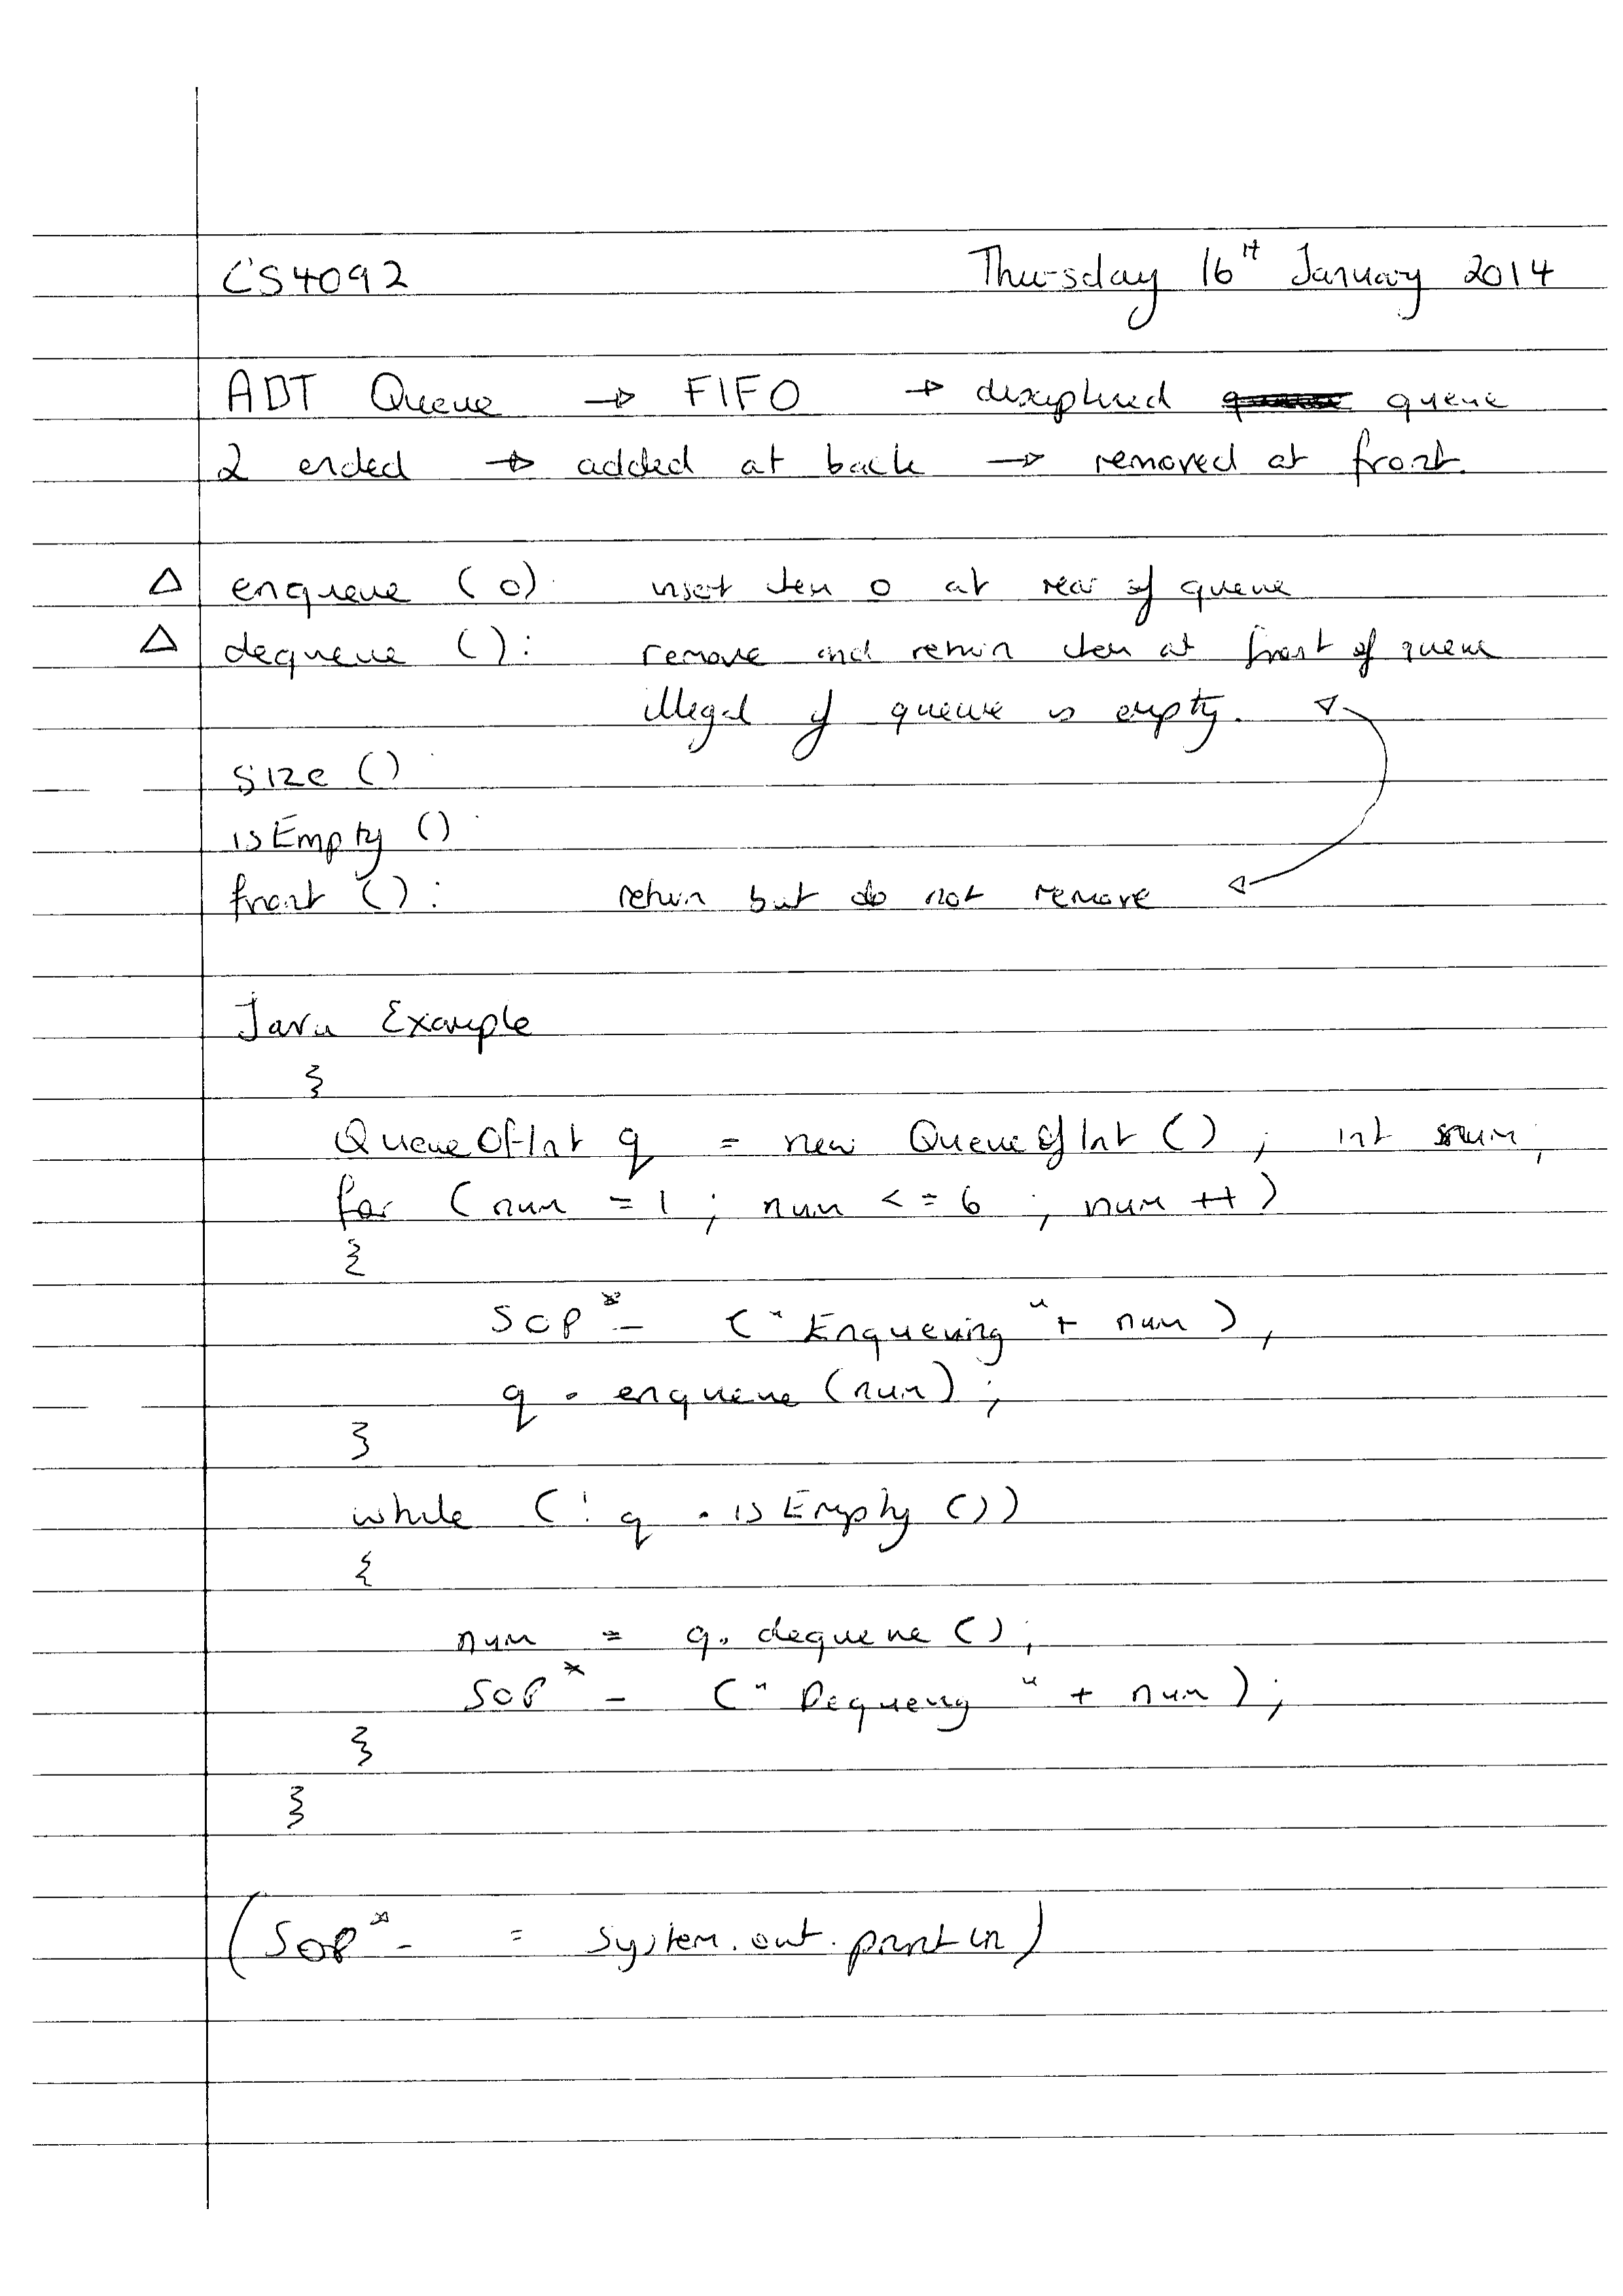 CS4092 Thursday 16th January 2014
ADT Queue → FIFO → disciplined queue
2 ended → added at back → removed at front.
△ enqueue (o): insert item o at rear of queue
△ dequeue (): remove and return item at front of queue
illegal if queue is empty.
size ()
isEmpty ()
front (): return but do not remove
Java Example
}
QueueOfInt q = new QueueOfInt () ; int num;
for (num = 1 ; num <= 6 ; num ++)
{
SOP* - ("Enqueuing" + num);
q. enqueue (num);
}
while (! q . isEmpty ())
{
num = q. dequeue ();
SOP* - ("Dequeuing" + num);
}
}
(SOP* - = System.out.println)